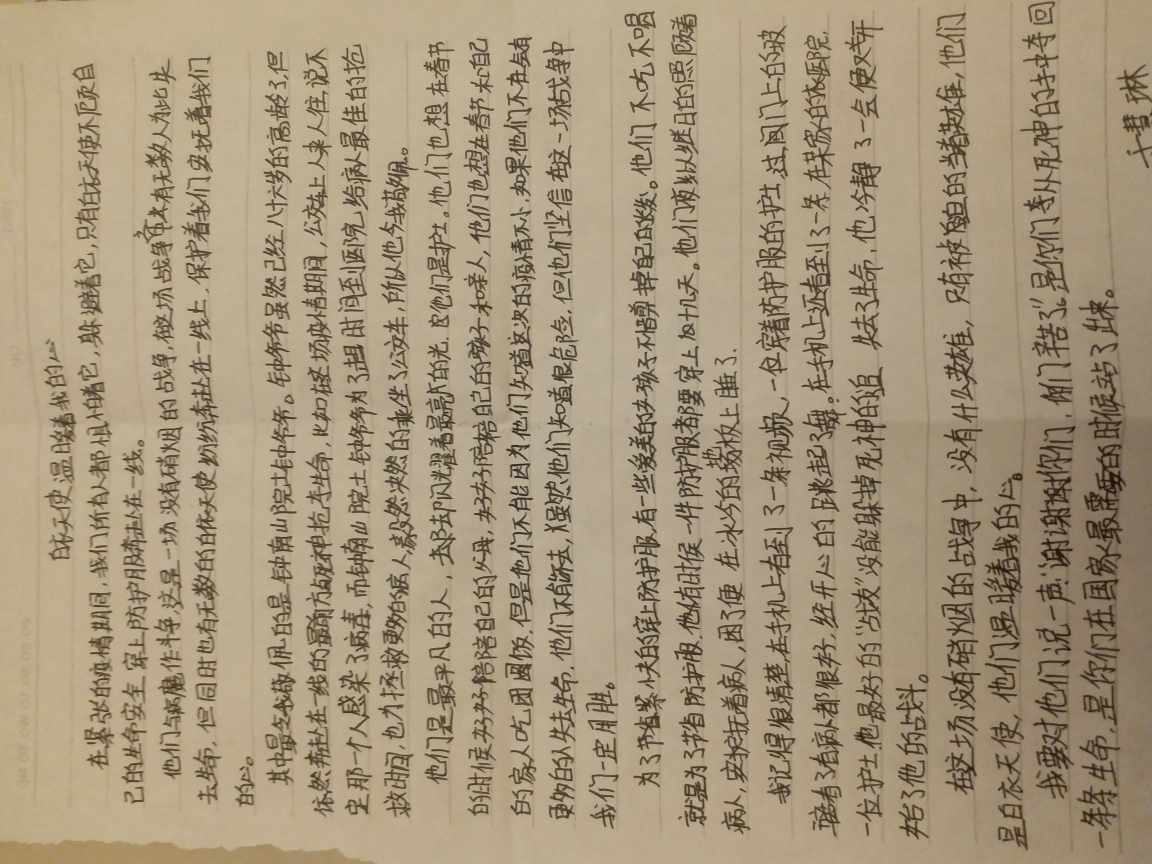 白衣天使温暖着我的心
在紧张的疫情期间,我们所有人都惧怕着它,躲避着它,只有白衣天使不顾自
己的生命安全,穿上防护服奔赴在一线。
他们与病魔作斗争,这是一场没有硝烟的战争,在这场战争中有无数人为此失
去生命,但同时也有无数的白衣天使纷纷奔赴在一线上,保护着我们安抚着我们
的心。
其中最令我敬佩的是钟南山院士钟爷爷。钟爷爷虽然已经八十六岁的高龄了,但
依然奔赴在一线的最前方与死神抢夺生命,比如在这场疫情期间,公交车上人来人往,说不
定那一个人感染了病毒,而钟南山院士钟爷爷为了赶时间到医院,给病人最佳的抢
救时间,也为拯救更多的病人,毅然决然的乘坐了公交车,所以他令我敬佩。
他们是最平凡的人,去却闪光耀着最高的光,它他们是护士。他们也想在春节
的时候好好陪陪自己的父母,好好陪陪自己的孩子和亲人,他们也想在春节和自己
的家人吃团圆饭,但是他们不能因为他们知道这次的疫情不小,如果他们不在会有
更多的人失去生命,他们不得不去,虽然他们知道很危险,但他们坚信在这一场战争中
我们一定用胜。
为了节省紧快的穿上防护服,有一些爱美的女孩子不惜剪掉自己的长发。他们不吃不喝
就是为了节省防护服,他们有时候一件防护服都要穿上加十几天。他们夜以继日的照顾着
病人,安抚着病人,困了便在冰冷的地板上睡了。
我记得很清楚在手机上看到了一条视频,一位穿着防护服的护士过闸门上的玻
璃看了看病都很好,终开心的跳起了舞。在手机上还看到了一条,在某家的医院,
一位护士,他最好的“战友”没能躲掉死神的追,失去了生命,他冷静了一会便又开
始了他的战斗。
在这场没有硝烟的战争中,没有什么英雄,只有被迫的当着英雄,他们
是白衣天使,他们温暖着我的心。
我要对他们说一声:“谢谢你们,你们辛苦了。”是你们夺从死神的手中夺回
一条条生命,是你们在国家最需要的时候站了出来。
于慧琳